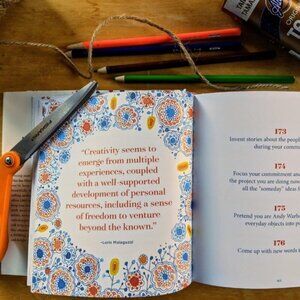 “Creativity seems to
emerge from multiple
experiences, coupled
with a well-supported
development of personal
resources, including a sense
of freedom to venture
beyond the known.”
–Loris Malaguzzi
173
Invent stories about the people
during your commute
174
Focus your commitment and
the project you are doing now
all the “someday” ideas
175
Pretend you are Andy Warhol
everyday objects into
176
Come up with new words